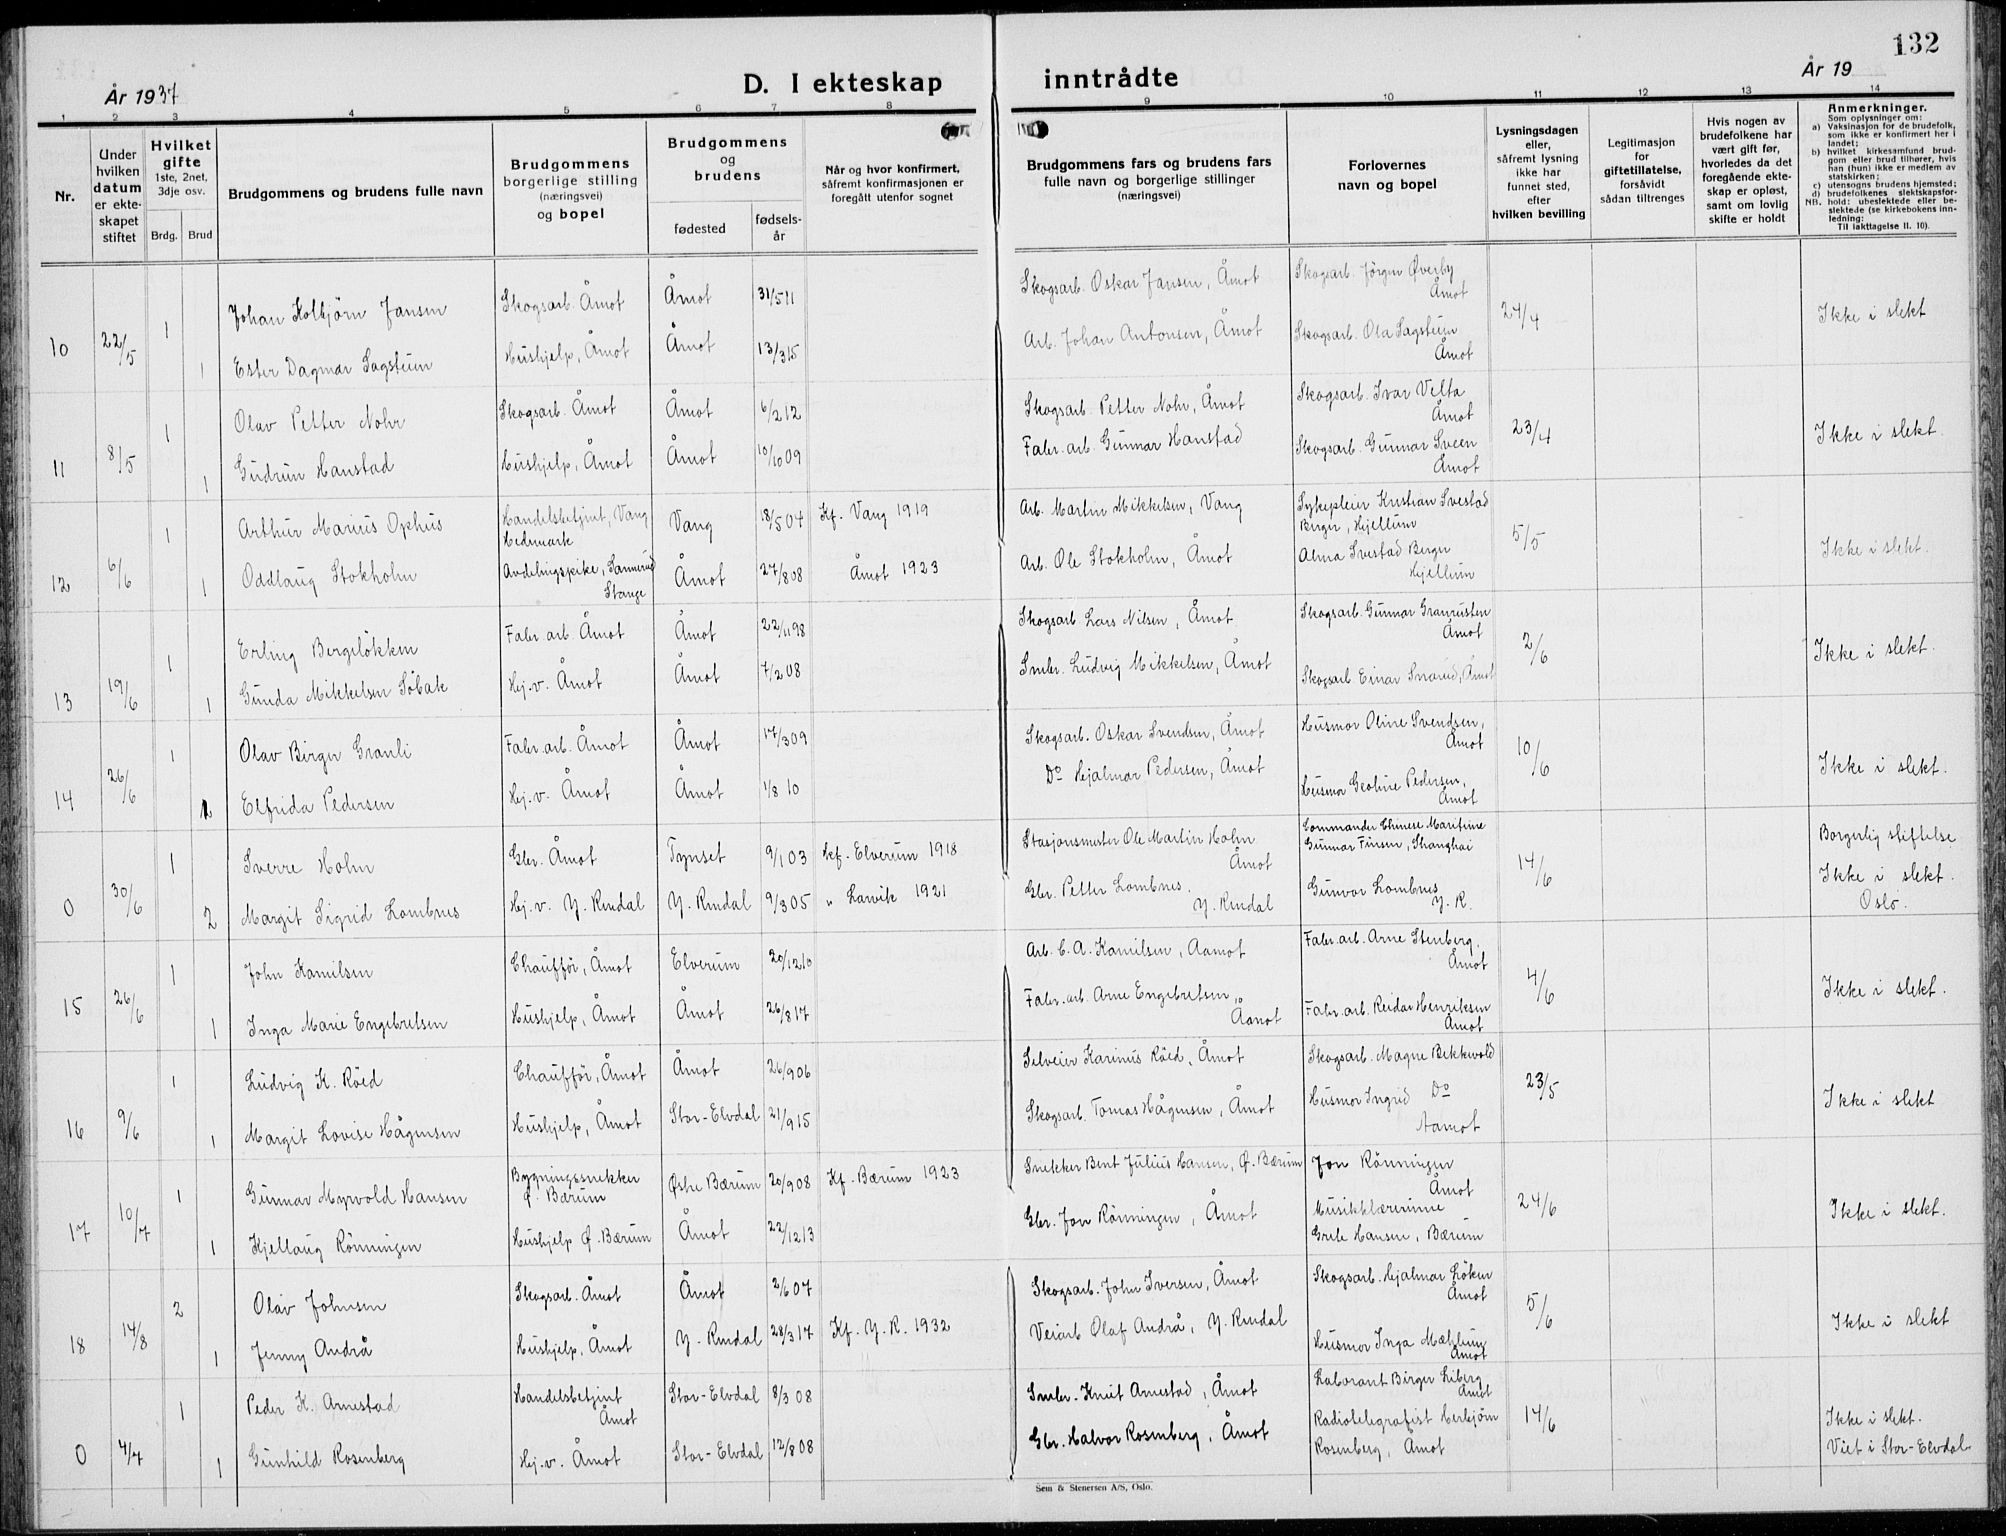 132
År 1937
D. I ekteskap inntrådte
År 19
1 2 3 4 5 6 7 8 9 10 11 12 13 14
Nr.
Under hvilken datum er ekteskapet stiftet
Hvilket gifte
1ste, 2net, 3dje osv.
Brdg. Brud
Brudgommens og brudens fulle navn
Brudgommens borgerlige stilling (næringsvei) og bopel
Brudgommens og brudens
fødested
fødselsår
Når og hvor konfirmert, såfremt konfirmasjonen er foregått utenfor sognet
Brudgommens fars og brudens fars fulle navn og borgerlige stillinger (næringsvei)
Forlovernes navn og bopel
Lysningsdagen eller, såfremt lysning ikke har funnet sted, efter hvilken bevilling
Legitimasjon for giftetillatelse, forsåvidt sådan tiltrenges
Hvis nogen av brudefolkene har vært gift før, hvorledes da det foregående ekteskap er opløst, samt om lovlig skifte er holdt
Anmerkninger.
Som oplysninger om:
a) Vaksinasjon for de brudefolk, som ikke er konfirmert her i landet;
b) hvilket kirkesamfund brudgom eller brud tilhører, hvis han (hun) ikke er medlem av statskirken;
c) utensogns brudens hjemsted;
d) brudefolkenes slektskapsforhold: ubeslektede eller beslektede (se kirkebokens innledning:
NB. Til iakttagelse II. 10).
10 22/5 1 Johan Kolbjørn Jansen Skogsarb. Åmot Åmot 31/5 11 Skogsarb. Oskar Jansen, Åmot Skogsarb. Jørgen Øverby Åmot 24/4 Ikke i slekt
1 Ester Dagmar Sagstuen Hushjelp, Åmot Åmot 13/3 15 Arb. Johan Antonsen, Åmot Skogsarb. Ola Sagstuen Åmot
11 8/5 1 Olav Petter Nohr Skogsarb. Åmot Åmot 6/2 12 Skogsarb. Petter Nohr, Åmot Skogsarb. Ivar Velta Åmot 23/4 Ikke i slekt.
1 Gudrun Hanstad Hushjelp, Åmot Åmot 10/10 09 Fabr. arb. Gunnar Hanstad Skogsarb. Gunnar Sveen Åmot
12 6/6 1 Arthur Marius Ophus Handelsbetjent, Vang Hedemark Vang 18/5 04 Kf. Vang 1919 Arb. Martin Mikkelsen, Vang Sykepleier Kristian Svestad Berger, Hjellum 5/5 Ikke i slekt.
1 Oddlaug Stokholm Avdelingspike, Sannerud Stange Åmot 27/8 08 Åmot 1923 Arb. Ole Stokholm, Åmot Alma Svestad Berger Hjellum
13 19/6 1 Erling Bergeløkken Fabr. arb. Åmot Åmot 22/11 98 Skogsarb. Lars Nilsen, Åmot Skogsarb. Gunnar Granrusten Åmot 2/6 Ikke i slekt.
1 Gunda Mikkelsen Søbak Hj. v. Åmot Åmot 7/2 08 Smbr. Ludvig Mikkelsen, Åmot Skogsarb. Einar Snarud, Åmot
14 26/6 1 Olav Birger Granli Fabr. arb. Åmot Åmot 17/3 09 Skogsarb. Oskar Svendsen, Åmot Husmor Oline Svendsen, Åmot 10/6 Ikke i slekt.
1 Elfrida Pedersen Hj. v. Åmot Åmot 1/8 10 Do Hjalmar Pedersen, Åmot Husmor Geoline Pedersen, Åmot
0 30/6 1 Sverre Holm Gbr. Åmot Tynset 9/1 03 Kf. Elverum 1918 Stasjonsmester Ole Martin Holm Åmot Commander Chinese Maritime Gunnar Finsen, Shanghai 14/6 Borgerlig stiftelse
2 Margit Sigrid Lombnes Hj. v. Y. Rendal Y. Rendal 9/3 05 " Larvik 1921 Gbr. Petter Lombnes. Y. Rendal Gunvor Lombnes Y. R. Ikke i slekt. Oslo.
15 26/6 1 John Kamilsen Chauffør, Åmot Elverum 20/12 10 Arb. C. A. Kamilsen, Aamot Fabr. arb. Arne Stenberg. Åmot 4/6 Ikke i slekt.
1 Inga Marie Engebretsen Hushjelp, Åmot Åmot 26/8 17 Fabr. arb. Arne Engebretsen, Åamot Fabr. arb. Reidar Henriksen Åmot
16 9/6 1 Ludvig K. Röed Chauffør, Åmot Åmot 26/9 06 Selveier Karinus Röed, Åmot Skogsarb. Magne Bekkevold 23/5 Ikke i slekt
1 Margit Lovise Hågensen Hushjelp, Åmot Stor-Elvdal 21/9 15 Skogsarb. Tomas Hågensen, Åmot Husmor Ingrid Do Aamot
17 10/7 1 Gunnar Myrvold Hansen Bygningssnekker Ø. Bærum Østre Bærum 20/9 08 Kf. Bærum 1923 Snekker Bent Julius Hansen, Ø. Bærum Jon Rönningen Åmot 24/6 Ikke i slekt.
1 Kjellaug Rönningen Hushjelp Ø. Bærum Åmot 22/12 13 Gbr. Jon Rönningen, Åmot Musikklærerinne Grete Hansen, Bærum
18 14/8 2 Olav Johnsen Skogsarb. Åmot Åmot 2/6 07 Skogsarb. John Iversen, Åmot Skogsarb. Hjalmar Löken Åmot 5/6 Ikke i slekt
1 Jenny Andrå Hushjelp, Åmot Y. Rendal 28/3 17 Kf. Y. R. 1932 Veiarb Olaf Andrå, Y. Rendal Husmor Inga Mæhlum Åmot
0 4/7 1 Peder K. Arnestad Handelsbetjent Åmot Stor-Elvdal 8/3 08 Smbr. Knut Arnestad, Åmot Laborant Birger Liberg Åmot 14/6 Ikke i slekt.
1 Gunhild Rosenberg Hj. v. Åmot Stor-Elvdal 12/8 08 Gbr. Halvor Rosenberg, Åmot Radiotelegrafist Herbjörn Rosenberg, Åmot Viet i Stor-Elvdal
Sem & Stenersen A/S, Oslo.